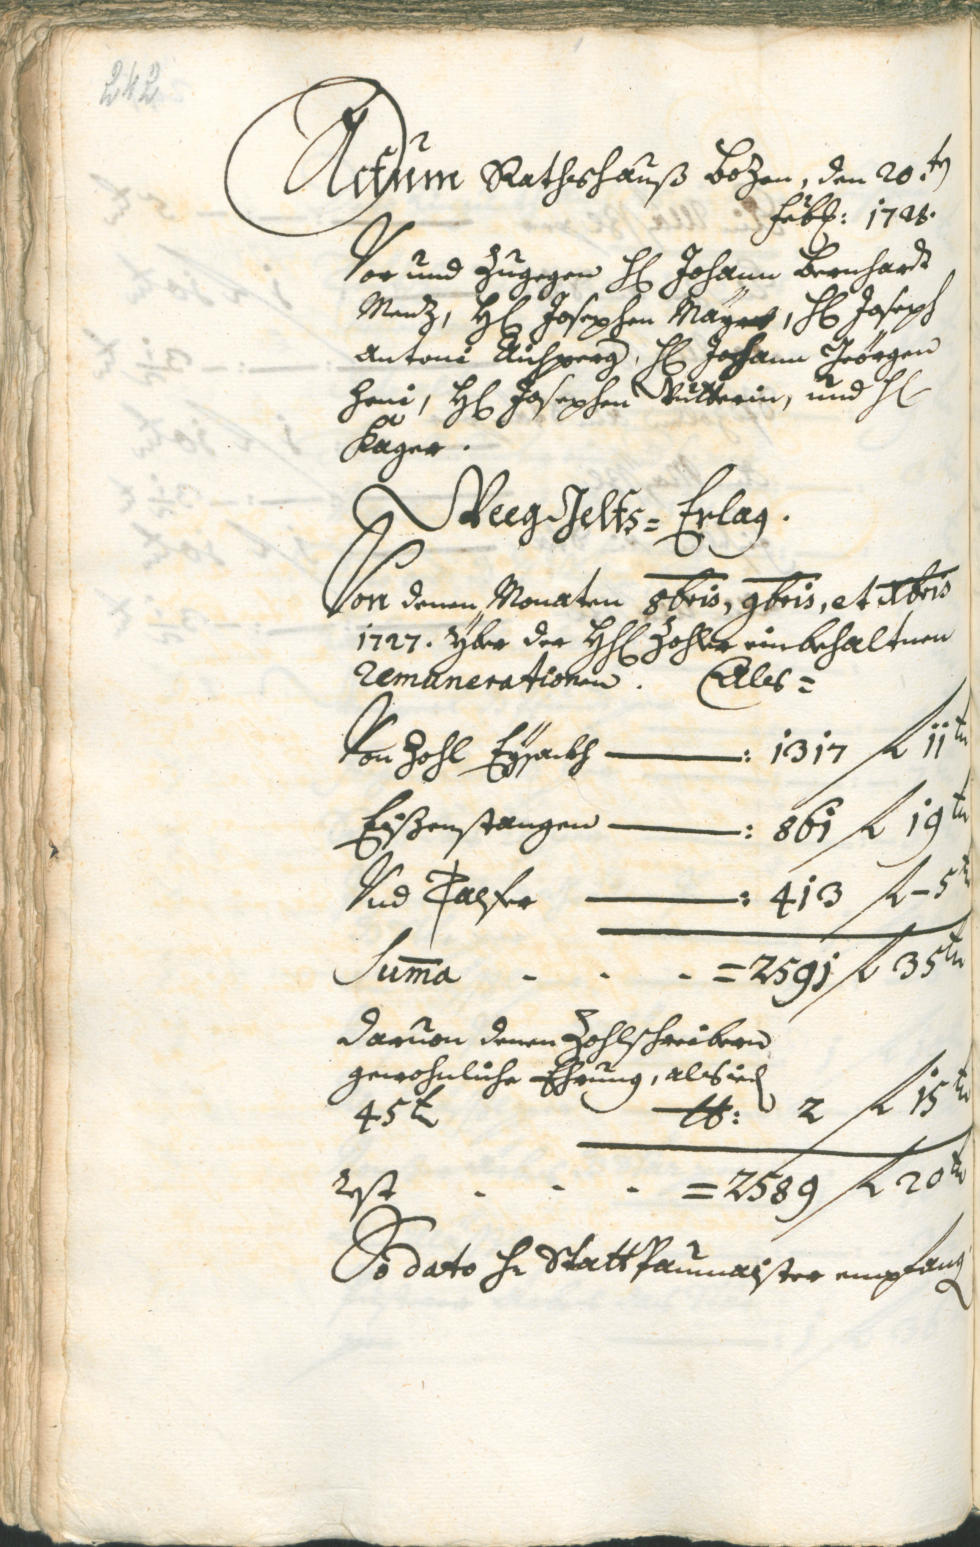 242
Actum Rathshauß Bozen, den 20.ten
Febr: 1728.
Vor und Zugegen H: Johann Bernhardt
Menz, H: Josephen Mayrn, H: Joseph
Antoni Aichperg, H: Johann Jeörgen
Heni, H: Josephen Vütterin, und H:
Käger.
Weeg Gelts= Erlag.
Von denen Monaten 8bris, 9bris, et Xbris
1727. Yber der HH: Zohler einbehaltnen
remunerationen. Als=
Von Zohl Eysackh : 1317 f 11 kr
Eißenstangen : 861 f 19 kr
Und Talfer : 413 f - 5 kr
Suma - - - = 2591 f 35 kr
daruon denen Zohlschreibern
gewohnliche Ehrung, als ied
45 kr tt: 2 f 15 kr
rest - - - = 2589 f 20 kr
So dato H: Statt Paumaister empfang